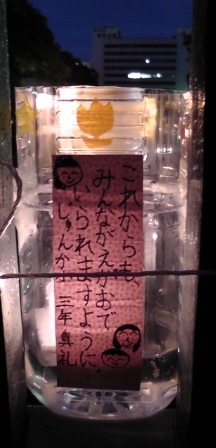 これからも、
みんながえがおで
いられますように。
じゅんか小 三年 真礼